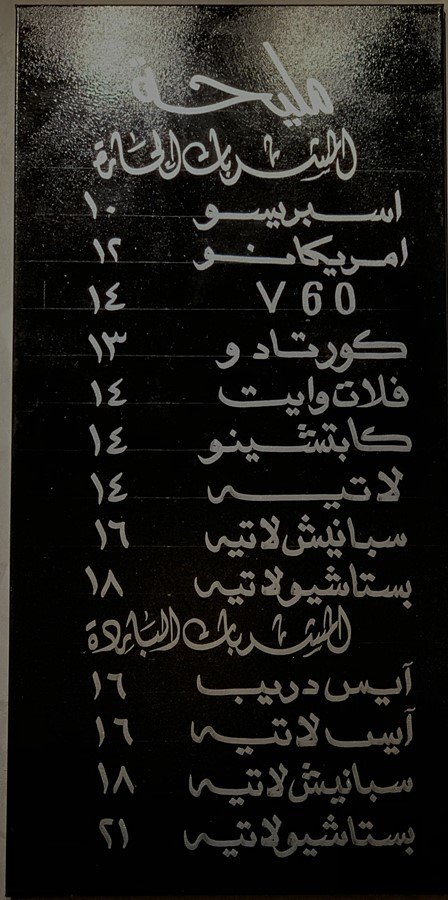 مليحة
المشروبات الحارة
اسبريسو ١٠
امريكانو ١٢
V60 ١٤
كورتادو ١٣
فلات وايت ١٤
كابتشينو ١٤
لاتيه ١٤
سبانيش لاتيه ١٦
بستاشيو لاتيه ١٨
المشروبات الباردة
آيس دريب ١٦
آيس لاتيه ١٦
سبانيش لاتيه ١٨
بستاشيو لاتيه ٢١